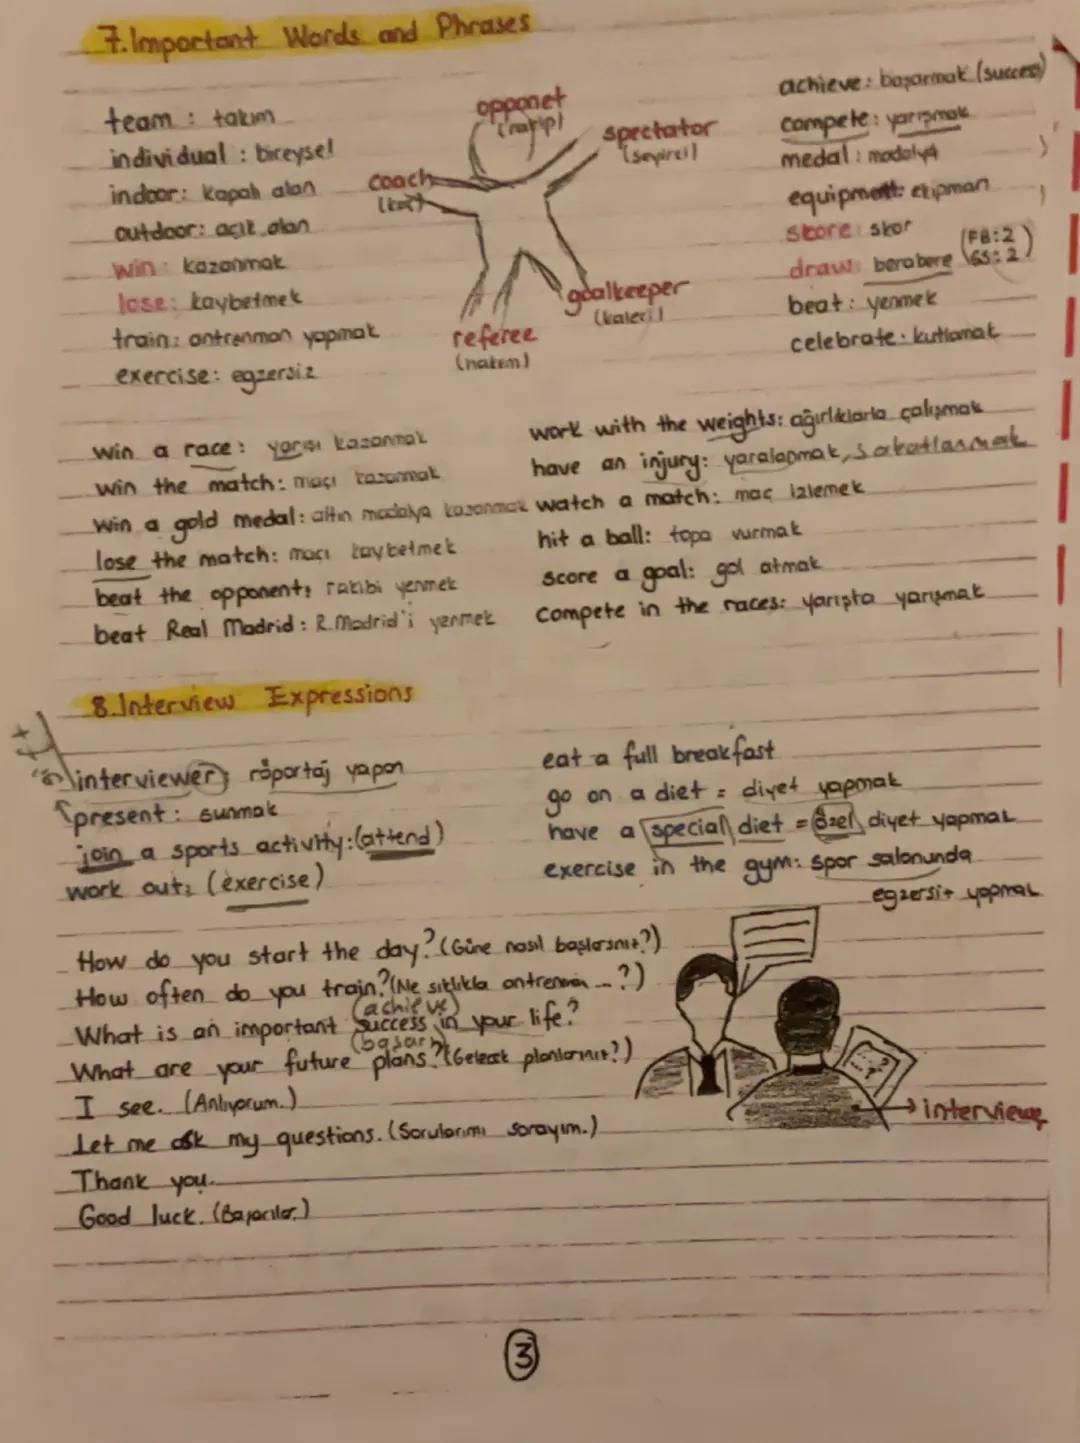 7.Important Words and Phrases
team : takım
individual : bireysel
indoor: kapalı alan
outdoor: açık alan
win: kazanmak
lose: kaybetmek
train: antrenman yapmak
exercise: egzersiz
opponet
(rakip)
spectator
(seyirci)
coach
(koç)
goalkeeper
(kaleci)
referee
(hakem)
achieve: başarmak (success)
compete: yarışmak
medal: madalya
equipment: ekipman
score: skor
draw: berabere (FB:2 GS:2)
beat: yenmek
celebrate: kutlamak
win a race: yarışı kazanmak
win the match: maçı kazanmak
win a gold medal: altın madalya kazanmak
lose the match: maçı kaybetmek
beat the opponent: rakibi yenmek
beat Real Madrid: R.Madrid'i yenmek
work with the weights: ağırlıklarla çalışmak
have an injury: yaralanmak, sakatlanmak
watch a match: maç izlemek
hit a ball: topa vurmak
score a goal: gol atmak
compete in the races: yarışta yarışmak
8.Interview Expressions
interviewer: röportaj yapan
present: sunmak
join a sports activity:(attend)
work out: (exercise)
eat a full breakfast
go on a diet = diyet yapmak
have a special diet = özel diyet yapmak
exercise in the gym: spor salonunda
egzersiz yapmak
How do you start the day? (Güne nasıl başlarsınız?)
How often do you train? (Ne sıklıkla antrenman ...?)
(achieve)
What is an important success in your life?
(başarı)
What are your future plans? (Gelecek planlarınız?)
I see. (Anlıyorum.)
Let me ask my questions. (Sorularımı sorayım.)
Thank you.
Good luck. (Başarılar.)
??
interviewe
3